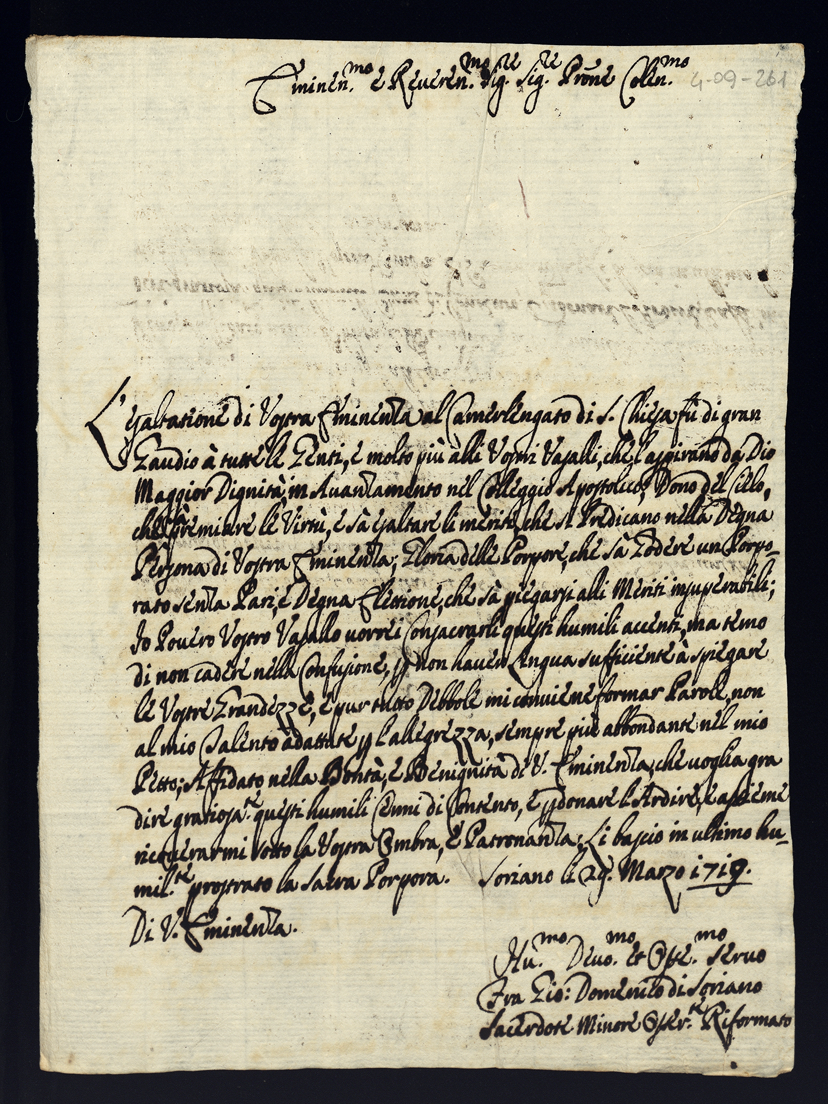 Eminen.mo e Reveren.mo Sig.re Sig.re Prōne Colen.mo
4-09-261
L'esaltatione di Vostra Eminenza al Camerlengato di S. Chiesa fù di gran
Gaudio à tutte le Genti, e molto più alli Vostri Vasalli, che l'aspirano da Dio
Maggior Dignità, in Avanzamento nel Colleggio Apostolico, Dono del Cielo,
che sà premiare le Virtù, e sà esaltare li meriti, che si Predicano nella Degna
Persona di Vostra Eminenza; Gloria delle Porpore, che sà Godere un Porpo-
rato senza Pari, e Degna Elettione, che sà piegarsi alli Meriti insuperabili;
Io Povero Vostro Vasallo vorrei Consacrarli questi humili accenti, ma temo
di non cadere nella Confusione, p non haver Lingua sufficiente à spiegare
le Vostre Grandezze, e pur tutto Debbole mi conviene formar Parole, non
al mio Talento adattate p l'allegrezza, sempre più abbondante nel mio
Petto; Affidato nella Bontà, e Benignità di V. Eminenza, che voglia gra
dire gratiosa.te questi humili Cenni di Contento, e pdonare l'Ardire, e assieme
ricoverarmi sotto la Vostra Ombra, e Patronanza; Li bascio in ultimo hu-
mil.te prostrato la Sacra Porpora. Soriano li 29. Marzo 1719.
Di V. Eminenza.
Hu.mo Devo.mo et Osse.mo Servo
Fra Gio: Domenico di Soriano
Sacerdote Minore Osser.te Riformato